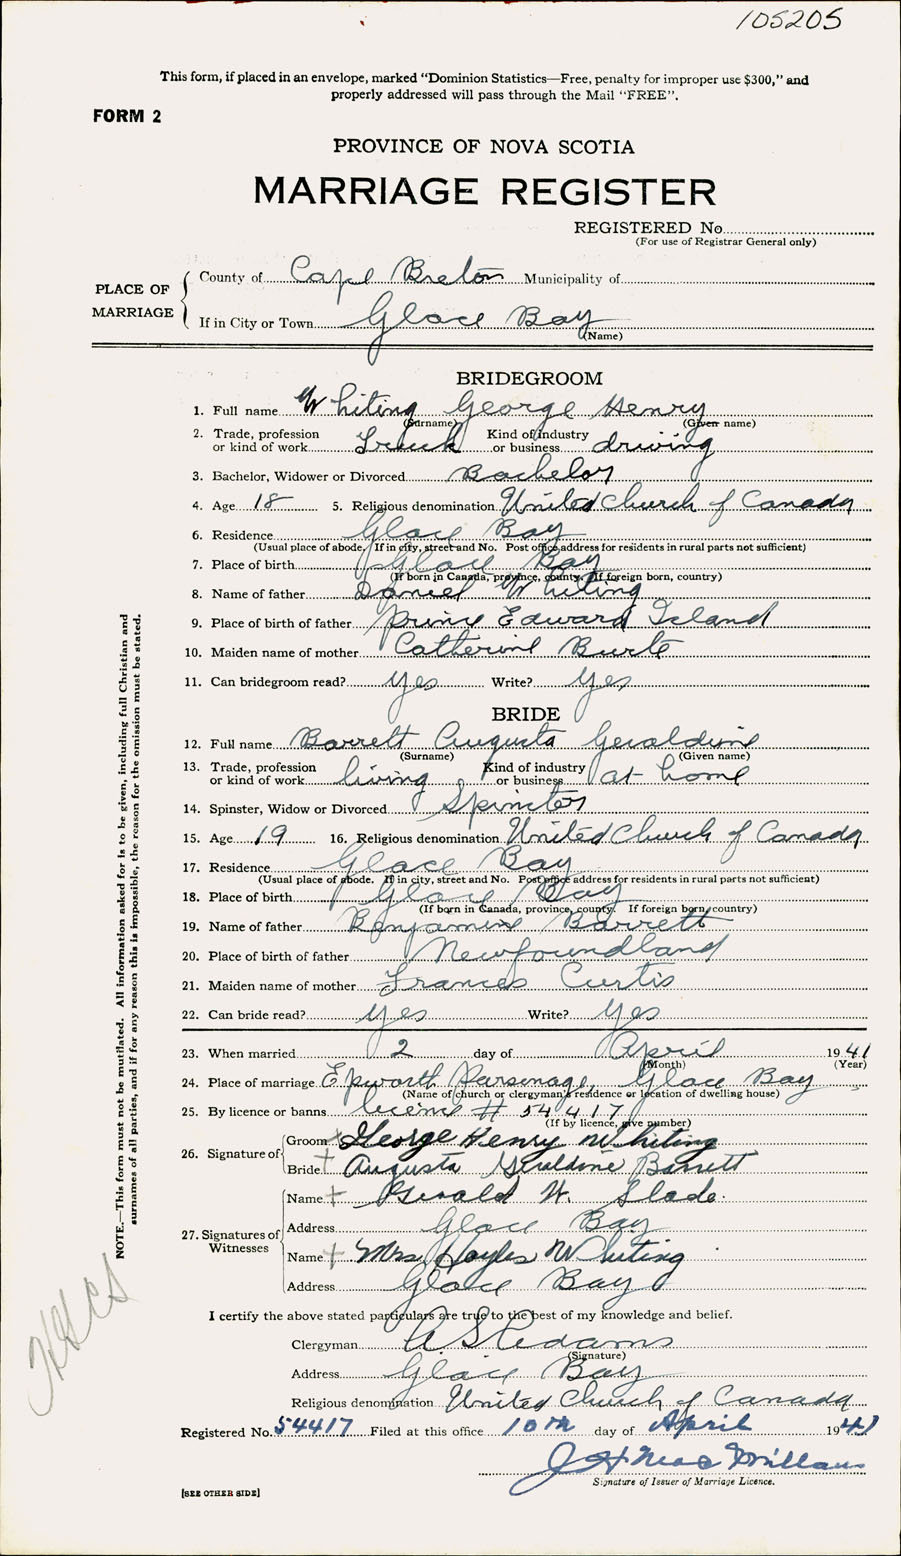 105205
This form, if placed in an envelope, marked “Dominion Statistics—Free, penalty for improper use $300,” and
properly addressed will pass through the Mail “FREE”.
FORM 2
PROVINCE OF NOVA SCOTIA
MARRIAGE REGISTER
REGISTERED No
(For use of Registrar General only)
PLACE OF MARRIAGE
County of Cape Breton Municipality of
If in City or Town Glace Bay
(Name)
BRIDEGROOM
1. Full name Whiting George Henry
(Surname) (Given name)
2. Trade, profession or kind of work Truck Kind of industry or business driving
3. Bachelor, Widower or Divorced Bachelor
4. Age 18 5. Religious denomination United Church of Canada
6. Residence Glace Bay
(Usual place of abode. If in city, street and No. Post office address for residents in rural parts not sufficient)
7. Place of birth Glace Bay
(If born in Canada, province, county. If foreign born, country)
8. Name of father Daniel Whiting
9. Place of birth of father Prince Edward Island
10. Maiden name of mother Catherine Burke
11. Can bridegroom read? yes Write? yes
BRIDE
12. Full name Barrett Augusta Geraldine
(Surname) (Given name)
13. Trade, profession or kind of work living Kind of industry or business at home
14. Spinster, Widow or Divorced Spinster
15. Age 19 16. Religious denomination United Church of Canada
17. Residence Glace Bay
(Usual place of abode. If in city, street and No. Post office address for residents in rural parts not sufficient)
18. Place of birth Glace Bay
(If born in Canada, province, county. If foreign born, country)
19. Name of father Benjamin Barrett
20. Place of birth of father Newfoundland
21. Maiden name of mother Frances Curtis
22. Can bride read? yes Write? yes
23. When married 2 day of April 1941
(Month) (Year)
24. Place of marriage Epworth Parsonage, Glace Bay
(Name of church or clergyman's residence or location of dwelling house)
25. By licence or banns licence # 54417
(If by licence, give number)
26. Signature of Groom George Henry Whiting
Bride Augusta Geraldine Barrett
27. Signatures of Witnesses
Name Gerald W. Slade.
Address Glace Bay
Name Mrs Hoyles Whiting
Address Glace Bay
I certify the above stated particulars are true to the best of my knowledge and belief.
Clergyman Adams
(Signature)
Address Glace Bay
Religious denomination United Church of Canada
Registered No. 54417 Filed at this office 10th day of April 1941
J H MacMillan
Signature of Issuer of Marriage Licence.
[SEE OTHER SIDE]
NOTE.—This form must not be mutilated. All information asked for is to be given, including full Christian and
surnames of all parties, and if for any reason this is impossible, the reason for the omission must be stated.